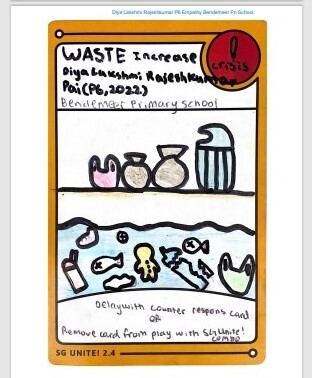 Diya Lakshmi Rajeshkumar P6 Empathy Bendemeer Pri School
WASTE Increase
crisis
Diya Lakshmi Rajeshkumar
Pai (P6, 2022)
Bendemeer Primary school
Delay with counter respons card
OR
Remove card from play with SG Unite!
combo
SG UNITE! 2.4